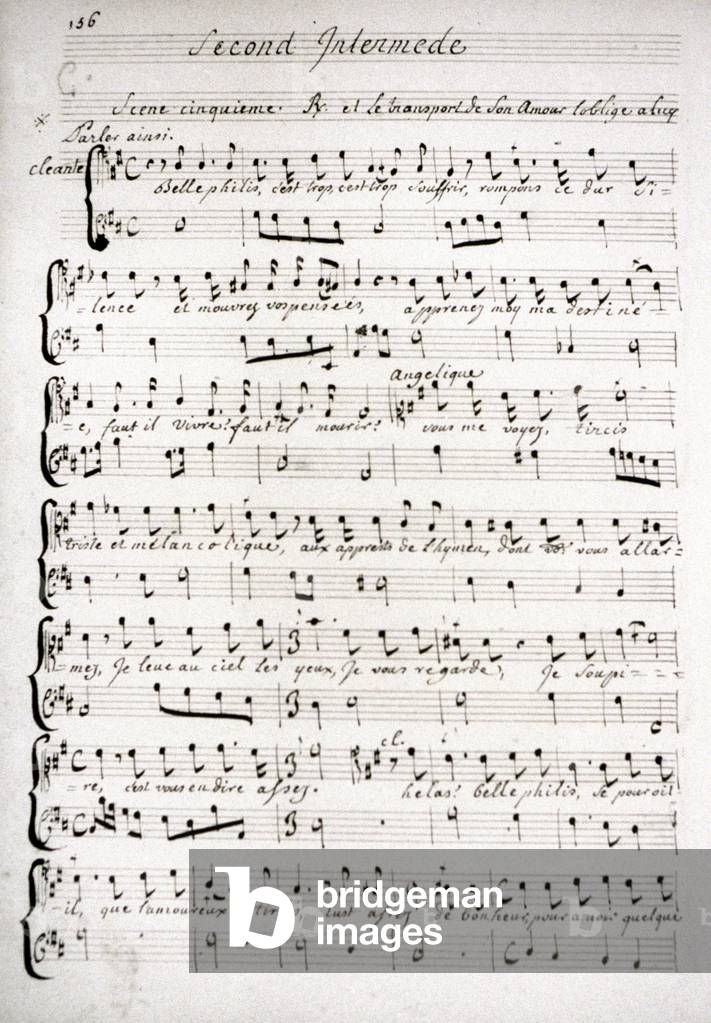 156
Second Intermede
Scene cinquieme. R. et le transport de Son Amour l'oblige a luy
Parler ainsi.
cleante
Belle philis, c'est trop, c'est trop souffrir, rompons ce dur Si=
=lence et m'ouvrez vos pensées, apprenez moy ma destiné=
Angelique
=e, faut il vivre? faut il mourir? vous me voyez, tircis
triste et mélancolique, aux apprests de L'hymen, dont vous allar=
=mez, Je leve au ciel Les yeux, Je vous regarde, Je soupi===
cl.
=re, c'est vous en dire assez. helas! belle philis, se pouroit
=il, que l'amoureux tircis fust assez de bonheur, pour avoir quelque
b bridgeman
images